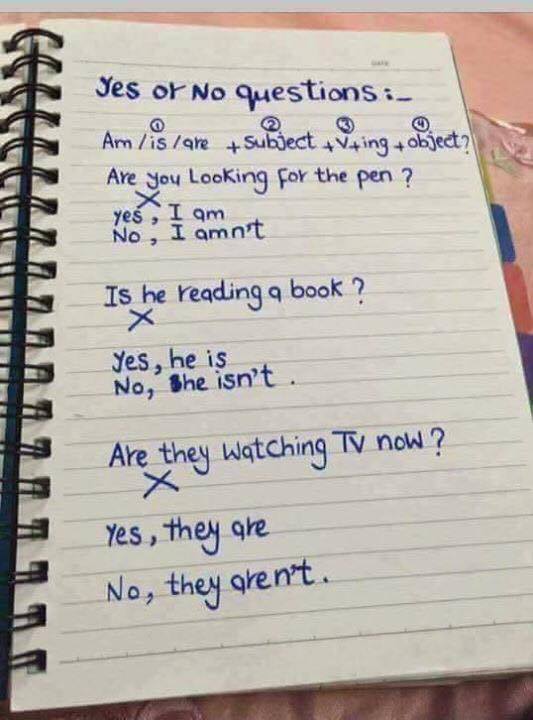 DATE
Yes or No questions :-
① ② ③ ④
Am / is / are + Subject + V + ing + object?
Are you Looking for the pen ?
X
yes, I am
No, I amn't
Is he reading a book ?
X
Yes, he is
No, he isn't .
Are they watching TV now ?
X
Yes, they are
No, they aren't .